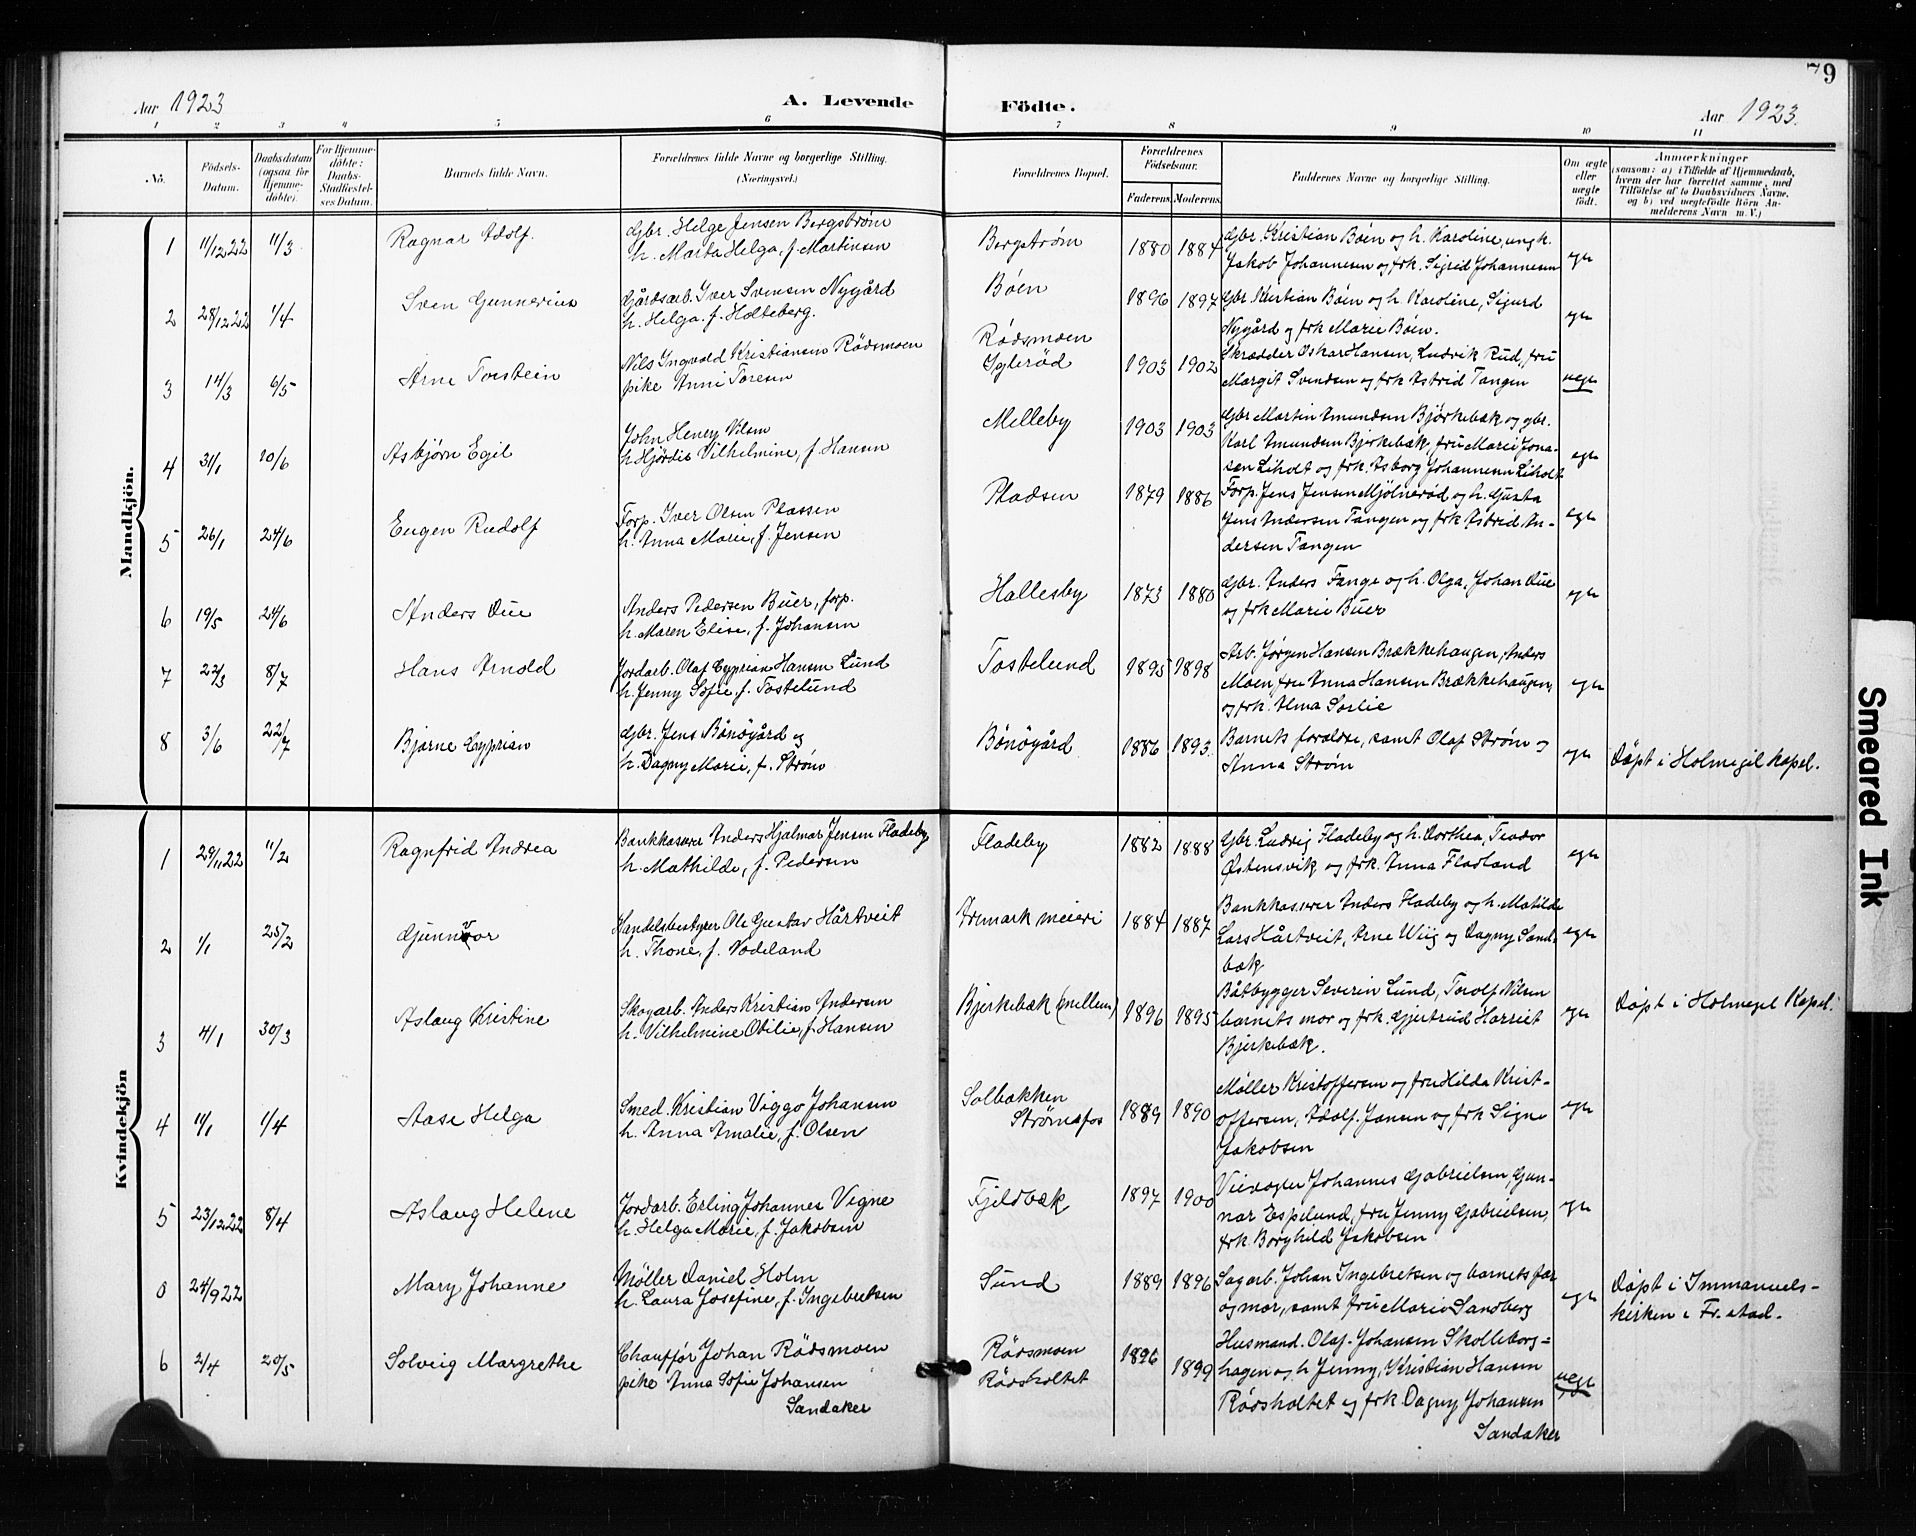 79
Aar 1923
A. Levende Födte.
Aar 1923.
1 2 3 4 5 6 7 8 9 10 11
No.
Födsels-Datum.
Daabsdatum (ogsaa for Hjemme-döbte).
For Hjemme-döbte: Daabs-Stadfæstel-ses Datum.
Barnets fulde Navn.
Forældrenes fulde Navne og borgerlige Stilling. (Næringsvei.)
Forældrenes Bopæl.
Forældrenes Födselsaar.
Faderens. Moderens.
Faddernes Navne og borgerlige Stilling.
Om ægte eller uægte födt.
Anmærkninger
(saasom: a) i Tilfælde af Hjemmedaab, hvem der har forrettet samme, med Tilföielse af to Daabsvidners Navne, og b) ved uegtefödte Börn An-melderens Navn m. V.)
Mandkjön.
1 11/12 22 11/3 Ragnar Adolf.
Gbr. Helge Jensen Bergström
h. Marta Helga, f. Martinsen
Bergstrøm 1880 1884
Gbr. Kristian Böen og h. Karoline, ungk.
Jakob Johannesen og frk. Sigrid Johannesen
egte
2 28/12 22 1/4 Sven Gunnerius
Gårdsarb. Iver Svensen Nygård
h. Helga f. Holteberg.
Böen 1896 1897
Gbr. Kristian Böen og h. Karoline, Sigurd
Nygård og frk Marie Böen.
egte
3 14/3 6/5 Arne Torstein
Nils Ingvald Kristiansen Rödsmoen
pike Anni Toresen
Rödsmoen
Ygterød 1903 1902
Skrædder Oskar Hansen, Ludvik Rud, fru
Margit Svendsen og frk Astrid Tangen
uegte
4 31/1 10/6 Asbjørn Egil
John Henry Nilsen
h Hjördis Vilhelmine, f. Hansen
Melleby 1903 1903
Gbr Martin Amundsen Bjørkebæk og gbr.
Karl Amundsen Bjerkebæk, fru Marie Jona-
sen Liholt og frk. Asborg Johannesen Liholt
egte
5 26/1 24/6 Eugen Rudolf
Forp. Iver Olsen Plassen
h. Anna Marie, f. Jensen
Pladsen 1879 1886
Forp. Jens Jensen Mjölnerød og h. Gusta
Jens Andersen Tangen og frk Astrid An-
dersen Tangen
egte
6 19/5 24/6 Anders Due
Anders Pedersen Buer, forp.
h. Maren Elise, f. Johansen
Hallesby 1873 1880
Gbr. Anders Fange og h. Olga, Johan Due
og frk Marie Buer
egte
7 22/3 8/7 Hans Arnold
Jordarb. Olaf Cyprian Hansen Lund
h. Jenny Sofie, f. Tostelund
Tostelund 1895 1898
Arb. Jörgen Hansen Brækkehaugen, Anders
Moen, fru Anna Hansen Brækkehaugen,
og frk. Alma Sørlie
egte
8 3/6 22/7 Bjarne Cyprian
Gbr. Jens Bönögård og
h. Dagny Marie, f. Ström
Bönögård 1886 1893.
Barnets forældre, samt Olaf Strøm og
Anna Strøm
egte Döpt i Holmegil kapel.
Kvindekjön
1 29/11 22 11/2 Ragnfrid Andrea
Bankkaserer Anders Hjalmar Jensen Fladeby
h. Mathilde, f. Pedersen
Fladeby 1882 1888
Gbr. Ludvig Fladeby og h. Dorthea, Teodor
Østensvik og frk. Anna Fladland
egte
2 1/1 25/2 Gunnvor
Handelsbestyrer Ole Gustav Hårtveit
h. Thone, f. Vodeland
Aremark meieri 1884 1887
Bankkaserer Anders Fladeby og h. Matilde
Lars Hårtveit, Arne Wiig og Dagny Sand-
bæk
egte
3 4/1 30/3 Aslaug Kristine
Skogarb. Anders Kristian Andersen
h. Vilhelmine Otilie, f. Hansen
Bjerkebæk (mellem) 1896 1895
Båtbygger Severin Lund, Torolf Nilsen
barnets mor og frk. Gjertrud Harriet
Bjerkebæk.
egte Döpt i Holmegil Kapel.
4 11/1 1/4 Aase Helga
Smed. Kristian Viggo Johansen
h. Anna Amalie, f. Olsen
Solbakken
Strömsfos 1889 1890
Møller Kristoffersen og fru Hilda Krist-
offersen, Adolf Jansen og frk Signe
Jakobsen
egte
5 23/12 22 8/4 Aslaug Helene
Jordarb. Erling Johannes Vigne
h. Helga Marie, f. Jakobsen
Fjeldbæk 1897 1900
Veivogter Johannes Gabrielsen, Gun-
nar Espelund, fru Jenny Gabrielsen,
frk. Borghild Jakobsen
egte
0 24/9 22 Mary Johanne
Møller Daniel Holm
h. Laura Josefine, f. Ingebretsen
Sund 1889 1896
Sagarb. Johan Ingebretsen og barnets far
og mor, samt fru Marie Sandberg
egte Döpt i Immanuels-
kirken i Fr.stad.
6 2/4 20/5 Solveig Margrethe
Chauffør Johan Rödsmoen
pike Anna Sofie Johansen
Sandaker
Rödsmoen
Rödsholtet 1896 1899
Husmand. Olaf Johansen Skolleborg-
hagen og h Jenny, Kristian Hansen
Rödsholtet og frk. Dagny Johansen
Sandaker
uegte
Smeared Ink